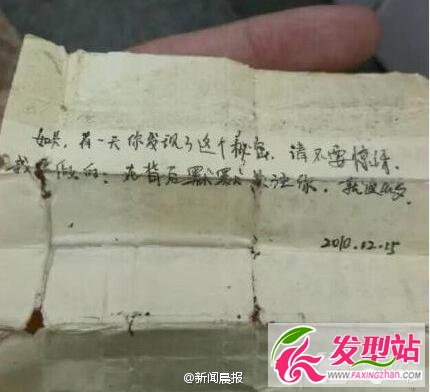 如果,有一天你发现了这个秘密,请不要惊讶。
我要做的:在背后默默关注你,就这么多
2010.12.15
@新闻晨报
发型站
WWW.FAXINGZHAN.COM